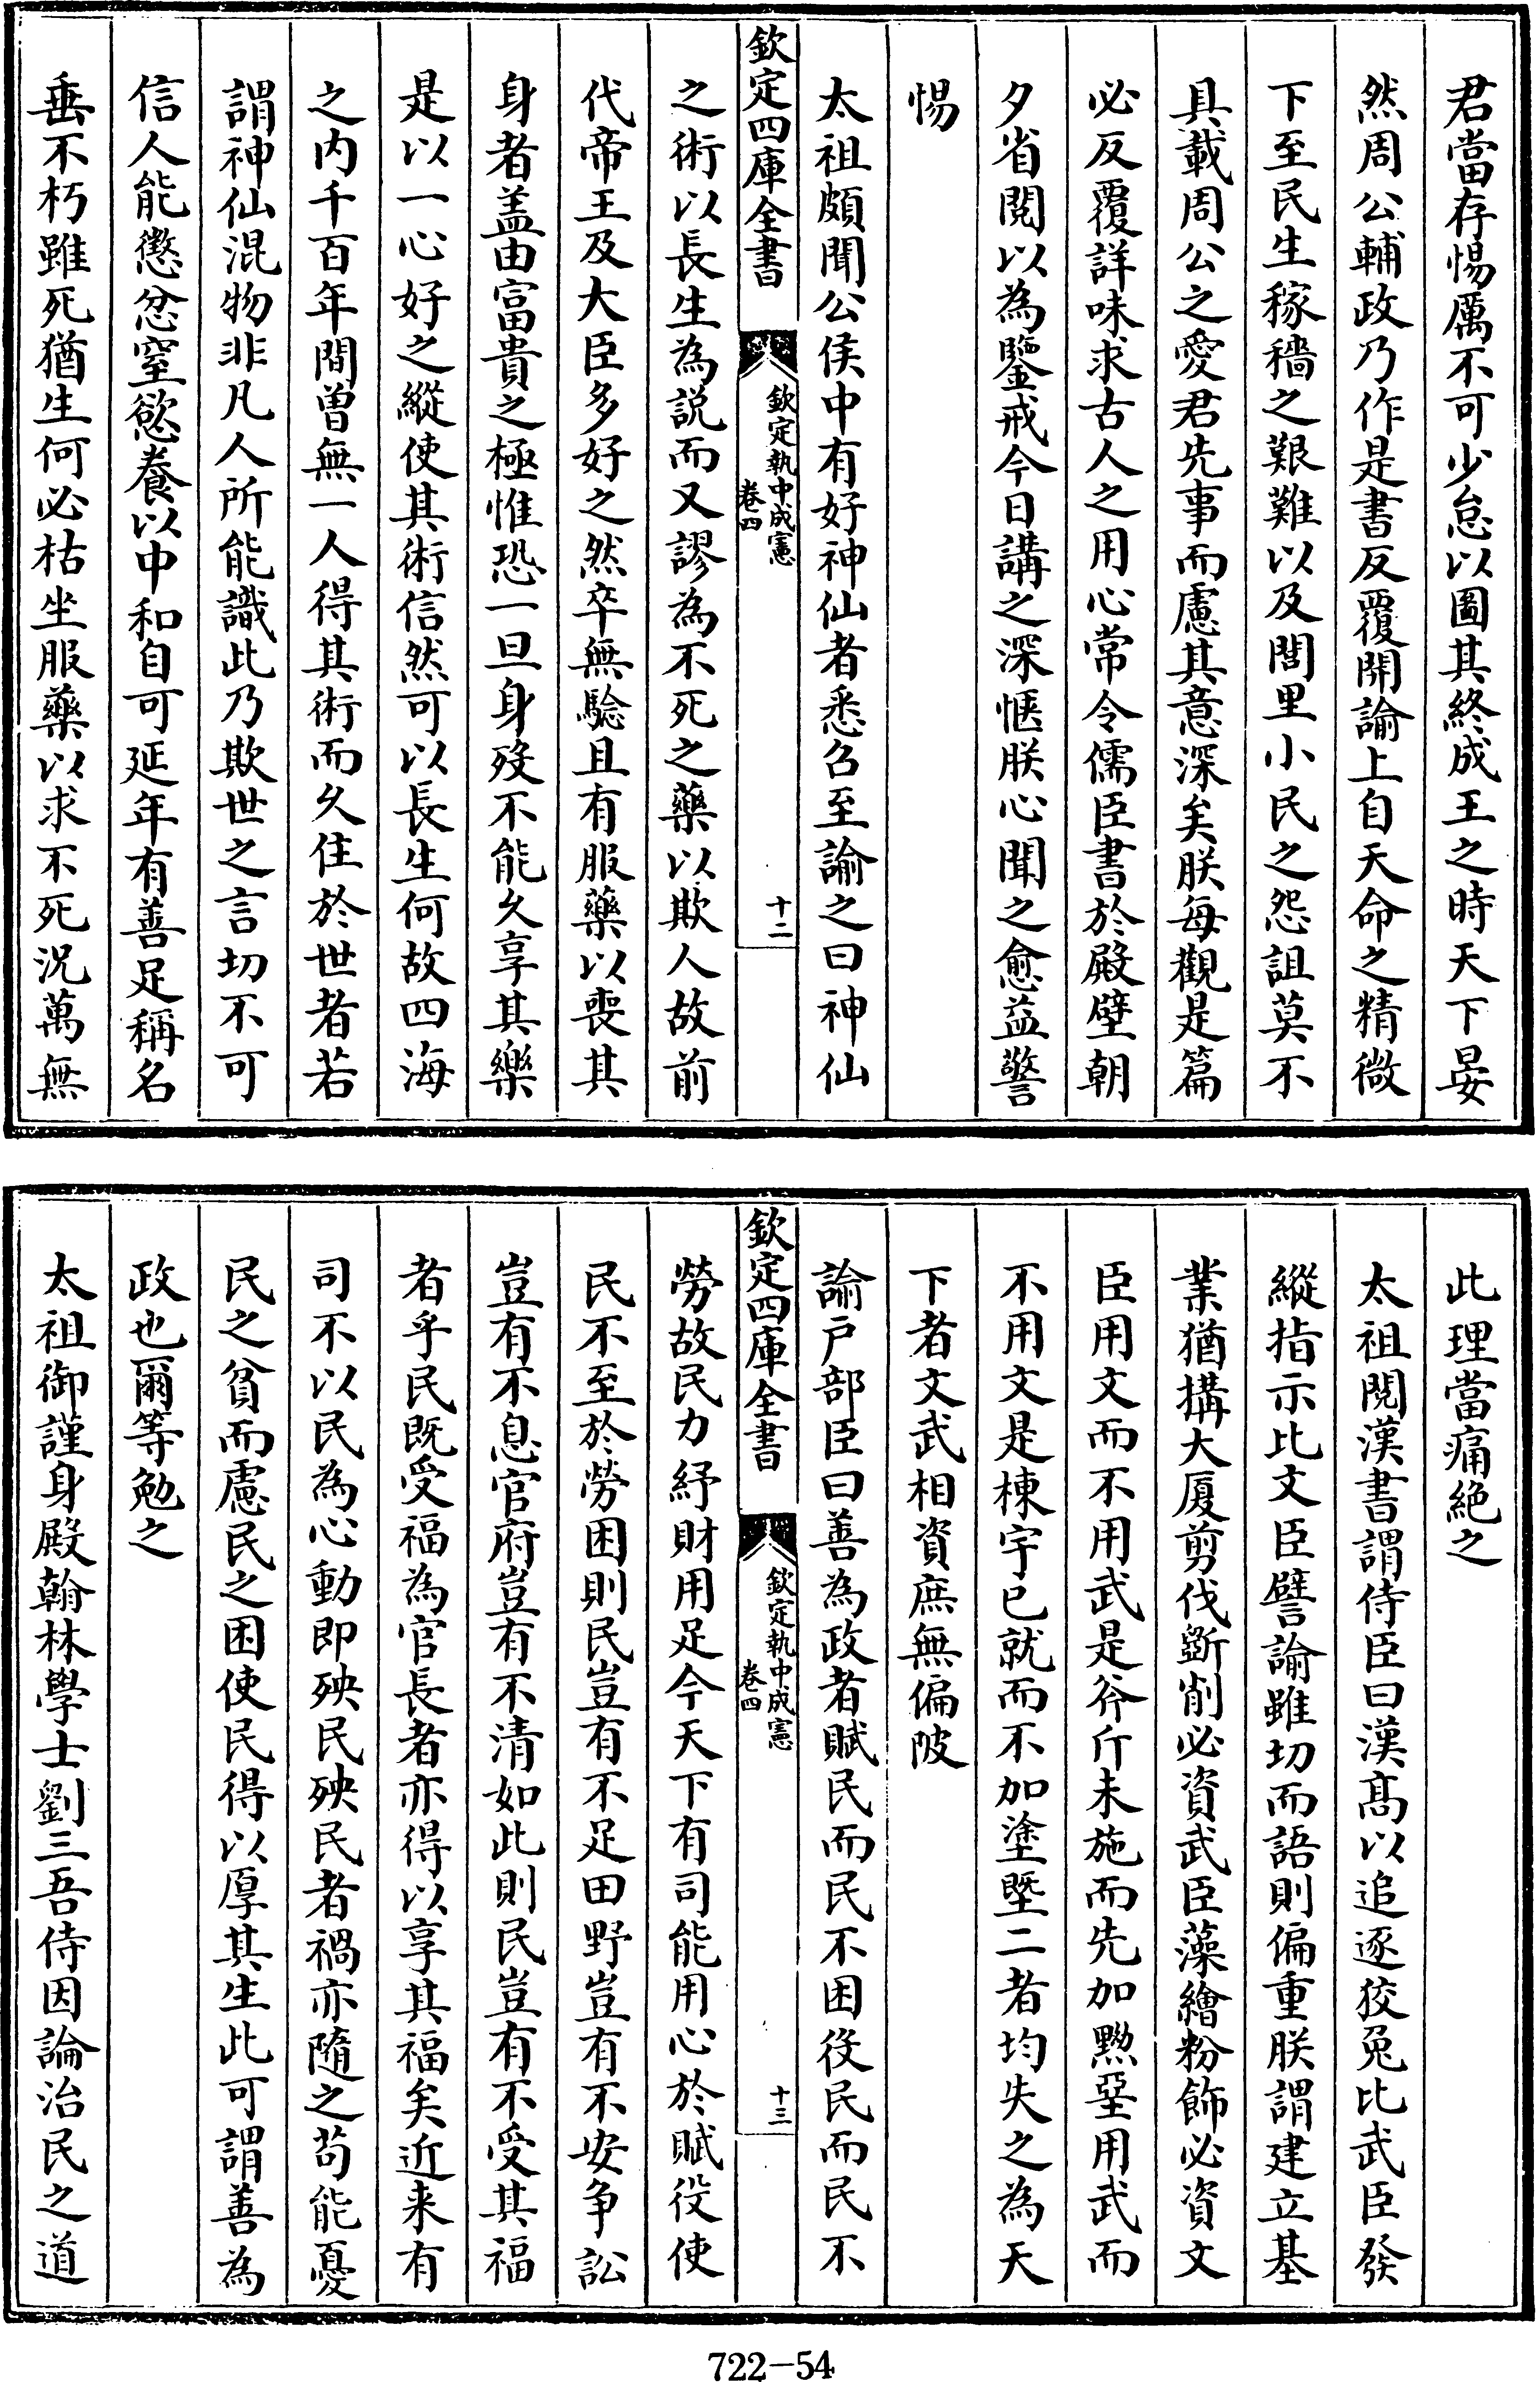 君當存惕厲不可少怠以圖其終成王之時天下晏
然周公輔政乃作是書反覆開諭上自天命之精微
下至民生稼穡之艱難以及閭里小民之怨詛莫不
具載周公之愛君先事而慮其意深矣朕每觀是篇
必反覆詳味求古人之用心常令儒臣書於殿壁朝
夕省閱以為鑒戒今日講之深愜朕心聞之愈益警
惕
太祖頗聞公侯中有好神仙者悉召至諭之曰神仙
欽定四庫全書
欽定執中成憲
卷四
十二
之術以長生為説而又謬為不死之藥以欺人故前
代帝王及大臣多好之然卒無驗且有服藥以喪其
身者盖由富貴之極惟恐一旦身歿不能久享其樂
是以一心好之縱使其術信然可以長生何故四海
之内千百年間曽無一人得其術而久住於世者若
謂神仙混物非凡人所能識此乃欺世之言切不可
信人能懲忿窒慾養以中和自可延年有善足稱名
垂不朽雖死猶生何必枯坐服藥以求不死況萬無
此理當痛絶之
太祖閱漢書謂侍臣曰漢髙以追逐狡兔比武臣發
縱指示比文臣譬諭雖切而語則偏重朕謂建立基
業猶搆大厦剪伐斵削必資武臣藻繪粉飾必資文
臣用文而不用武是斧斤未施而先加黝堊用武而
不用文是棟宇已就而不加塗塈二者均失之為天
下者文武相資庶無偏陂
諭户部臣曰善為政者賦民而民不困役民而民不
欽定四庫全書
欽定執中成憲
卷四
十三
勞故民力紓財用足今天下有司能用心於賦役使
民不至於勞困則民豈有不足田野豈有不安争訟
豈有不息官府豈有不清如此則民豈有不受其福
者乎民既受福為官長者亦得以享其福矣近来有
司不以民為心動即殃民殃民者禍亦隨之苟能憂
民之貧而慮民之困使民得以厚其生此可謂善為
政也爾等勉之
太祖御謹身殿翰林學士劉三吾侍因論治民之道
722-54